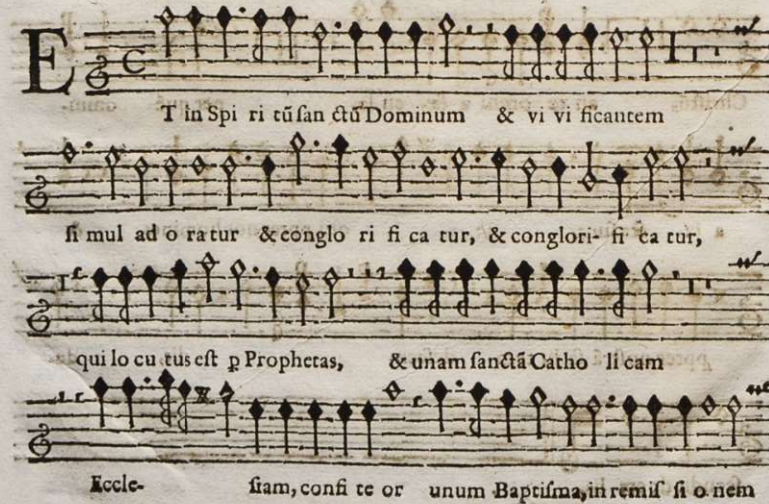 ET in Spi ri tũ san ctũ Dominum & vi vi ficantem
si mul ad o ra tur & conglo ri fi ca tur, & conglori- fi ca tur,
qui lo cu tus est ꝑ Prophetas, & unam sanctã Catho li cam
Eccle- siam, confi te or unum Baptisma, in remis si o nem